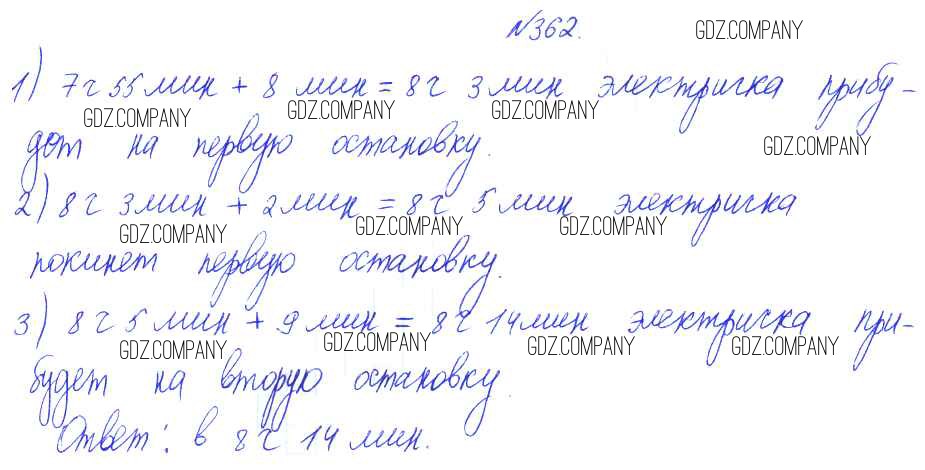 №362. GDZ.COMPANY
1) 7 ч 55 мин + 8 мин = 8 ч 3 мин электричка прибу-
GDZ.COMPANY GDZ.COMPANY GDZ.COMPANY
дет на первую остановку. GDZ.COMPANY
2) 8 ч 3 мин + 2 мин = 8 ч 5 мин электричка
GDZ.COMPANY GDZ.COMPANY GDZ.COMPANY
покинет первую остановку.
3) 8 ч 5 мин + 9 мин = 8 ч 14 мин электричка при-
GDZ.COMPANY GDZ.COMPANY GDZ.COMPANY GDZ.COMPANY
будет на вторую остановку.
Ответ: в 8 ч 14 мин.